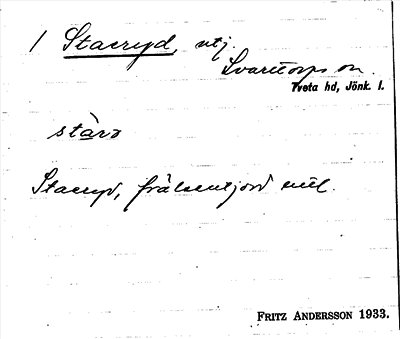 1 Stacryd, utj.
Svarttorps sn.
Tveta hd, Jönk. l.
Stacryd, frälseutjord enl.
FRITZ ANDERSSON 1933.